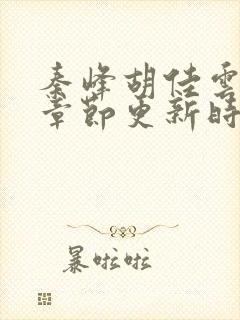 秦峰胡佳雲
章節更新時
暴啦啦